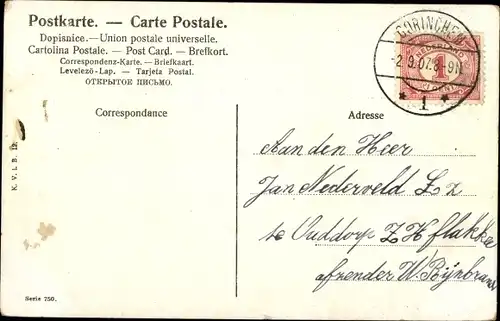 Postkarte. — Carte Postale.
Dopisnice. — Union postale universelle.
Cartolina Postale. — Post Card. — Brefkort.
Correspondenz-Karte. — Briefkaart.
Levelező-Lap. — Tarjeta Postal.
ОТКРЫТОЕ ПИСЬМО.
GORINCHEM
-2.9.07.8-9V
* 1 *
NEDERLAND
1
Correspondance
Adresse
Aan den Heer
Jan Nederveld Lz
te Ouddorp Z.H. flakkee
afzender W.
K. V. i. B. 12.
Serie 750.